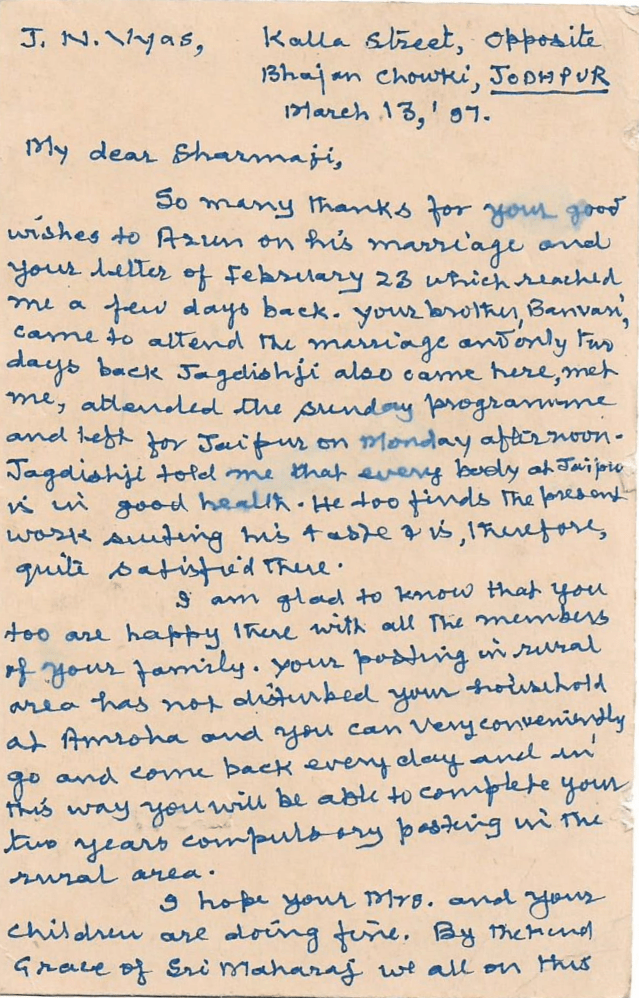 J. N. Vyas, Kalla Street, Opposite
Bhajan Chowki, JODHPUR
March 13, '97.
My dear Sharmaji,
So many thanks for your good
wishes to Arun on his marriage and
your letter of February 23 which reached
me a few days back. Your brother, Banvari,
came to attend the marriage and only two
days back Jagdishji also came here, met
me, attended the Sunday programme
and left for Jaipur on Monday afternoon.
Jagdishji told me that every body at Jaipur
is in good health. He too finds the present
work suiting his taste & is, therefore,
quite satisfied there.
I am glad to know that you
too are happy there with all the members
of your family. Your posting in rural
area has not disturbed your household
at Amroha and you can very conveniently
go and come back every day and in
this way you will be able to complete your
two years compulsory posting in the
rural area.
I hope your Mrs. and your
children are doing fine. By the kind
Grace of Sri Maharaj we all on this